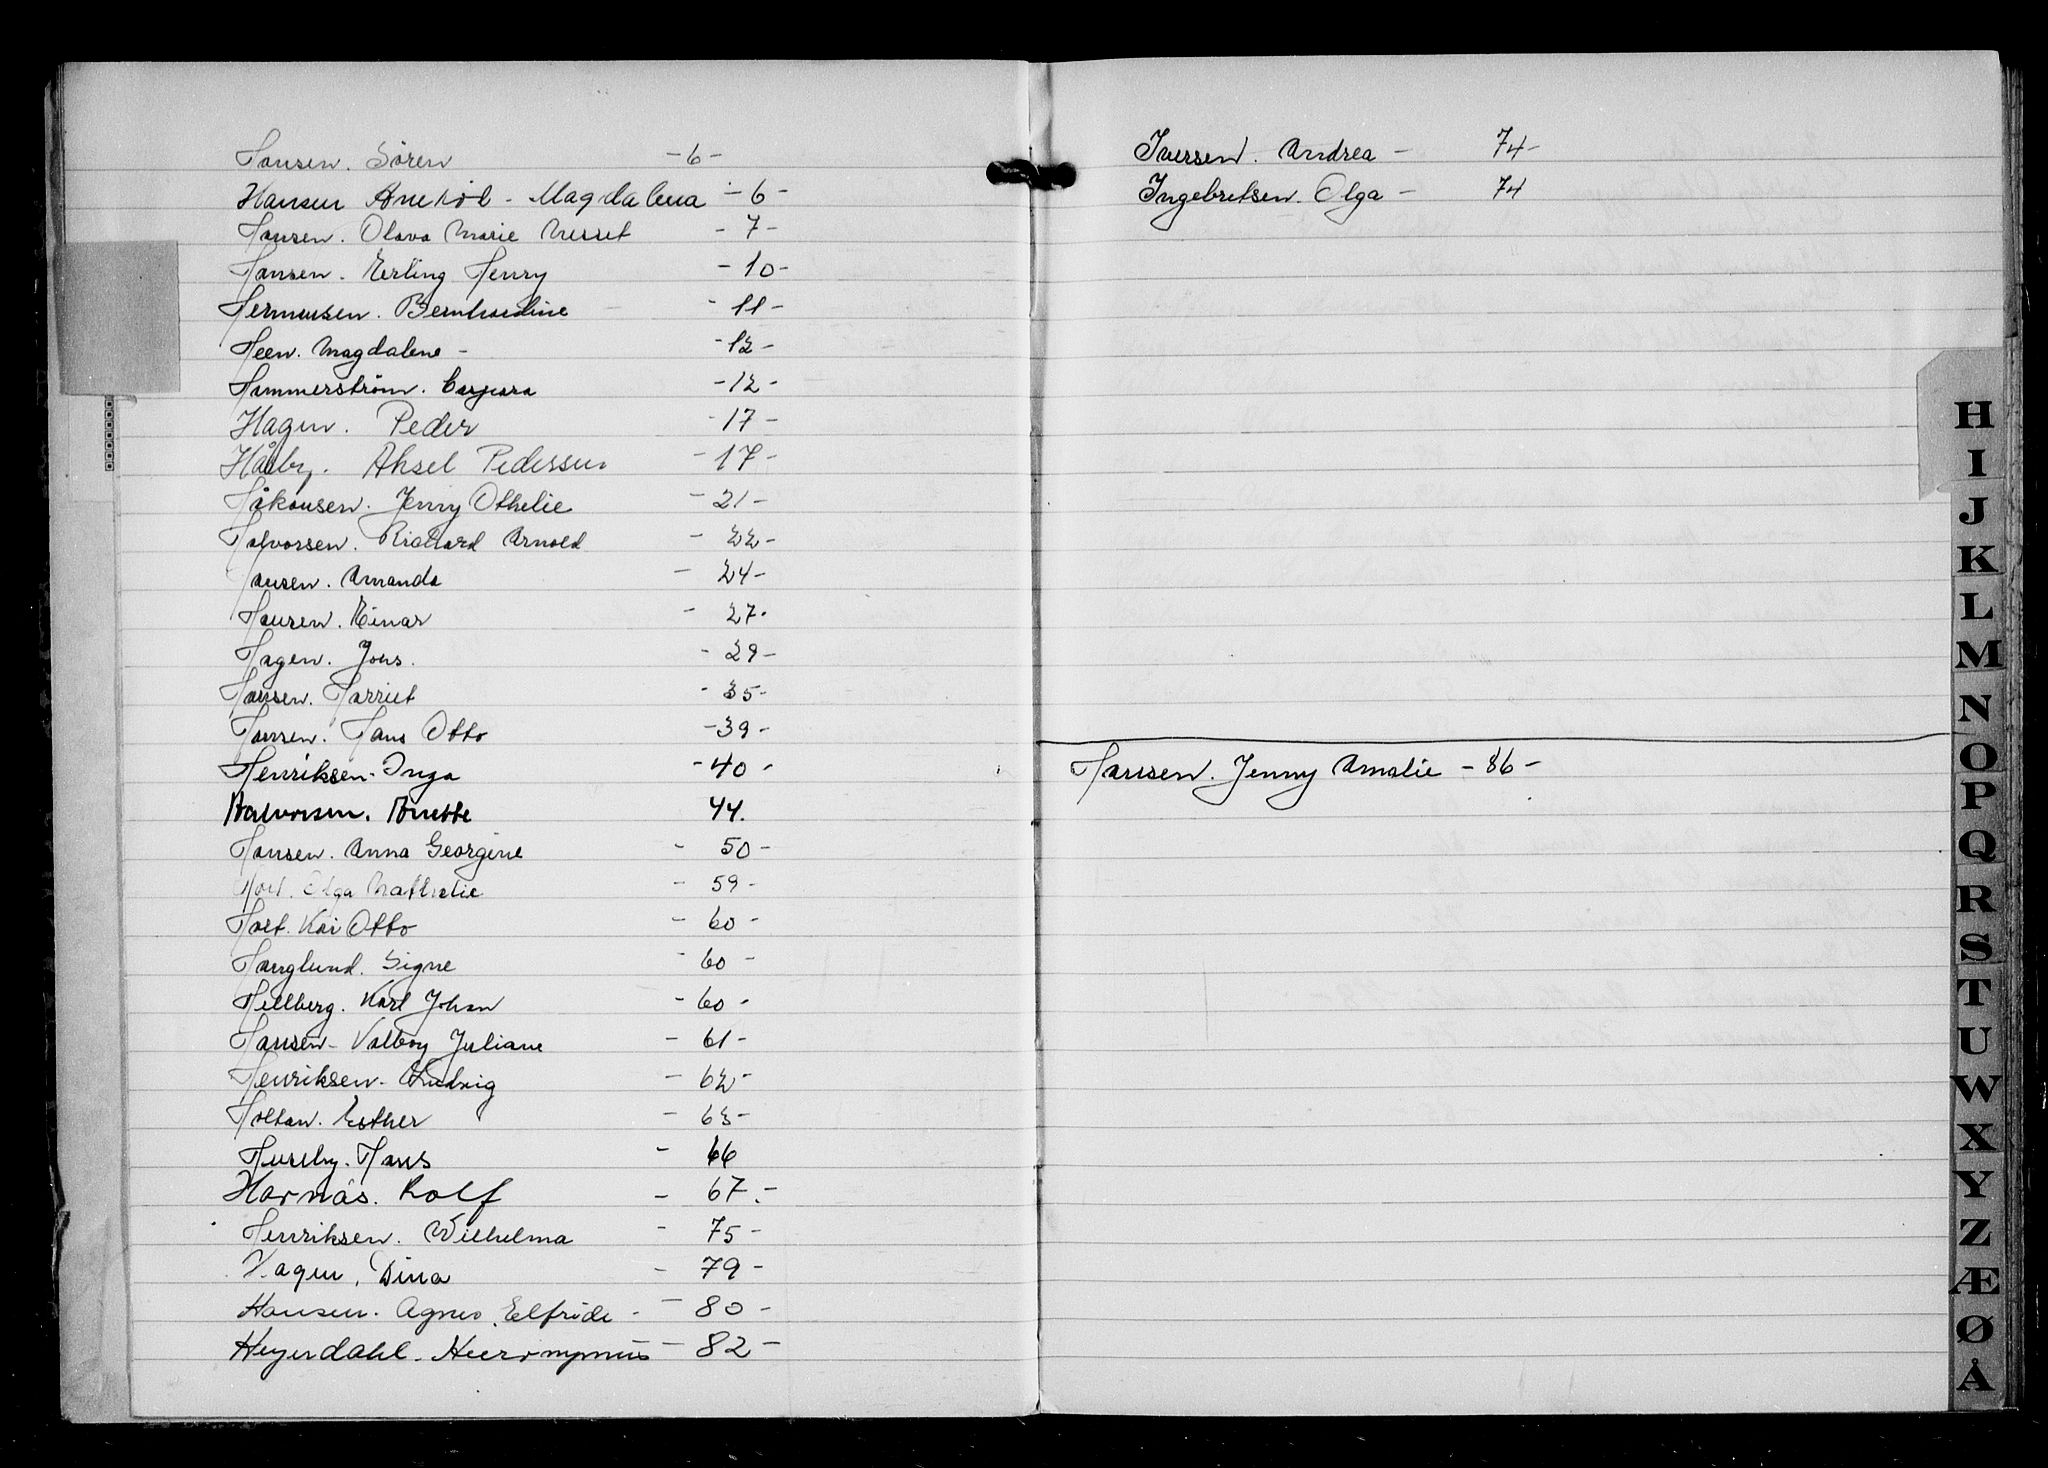 Hansen. Sören -6-
Hansen Magdalena - 6 -
Hansen. Olava Marie Nesset - 7 -
Hansen. Erling Henry - 10 -
Hermansen. Bernhardine - 11 -
Heen. Magdalene - - 12 -
Hammerström. Caspara - 12 -
Hagen. Peder - 17 -
Håby. Aksel Pedersen - 17 -
Håkonsen. Jenny Othelie - 21 -
Halvorsen. Richard Arnold - 22 -
Hansen. Amanda - 24 -
Hansen. Einar - 27.
Hagen. Johs. - 29 -
Hansen. Harriet - 35 -
Hansen. Hans Otto - 39 -
Henriksen. Inga - 40 -
Halvorsen. Anette 44.
Hansen. Anna Georgine - 50 -
Holt. Olga Mathalie - 59 -
Holt. Kai Otto - 60 -
Hauglund. Signe - 60 -
Hellberg. Karl Johan - 60 -
Hansen - Valborg Juliane - 61 -
Henriksen - Ludvig - 62 -
Holtan. Esther - 63 -
Hans - 66
Harnås. Rolf - 67.-
Henriksen. Wilhelma - 75 -
Hagen, Dina - 79 -
Hansen. Agnes Elfride - - 80 -
Heyerdahl - Hieronymus - 82 -
Iversen. Andrea - 74 -
Ingebretsen. Olga - 74
Hansen. Jenny Amalie - 86 -
H
I
J
K
L
M
N
O
P
Q
R
S
T
U
W
X
Y
Z
Æ
Ø
Å